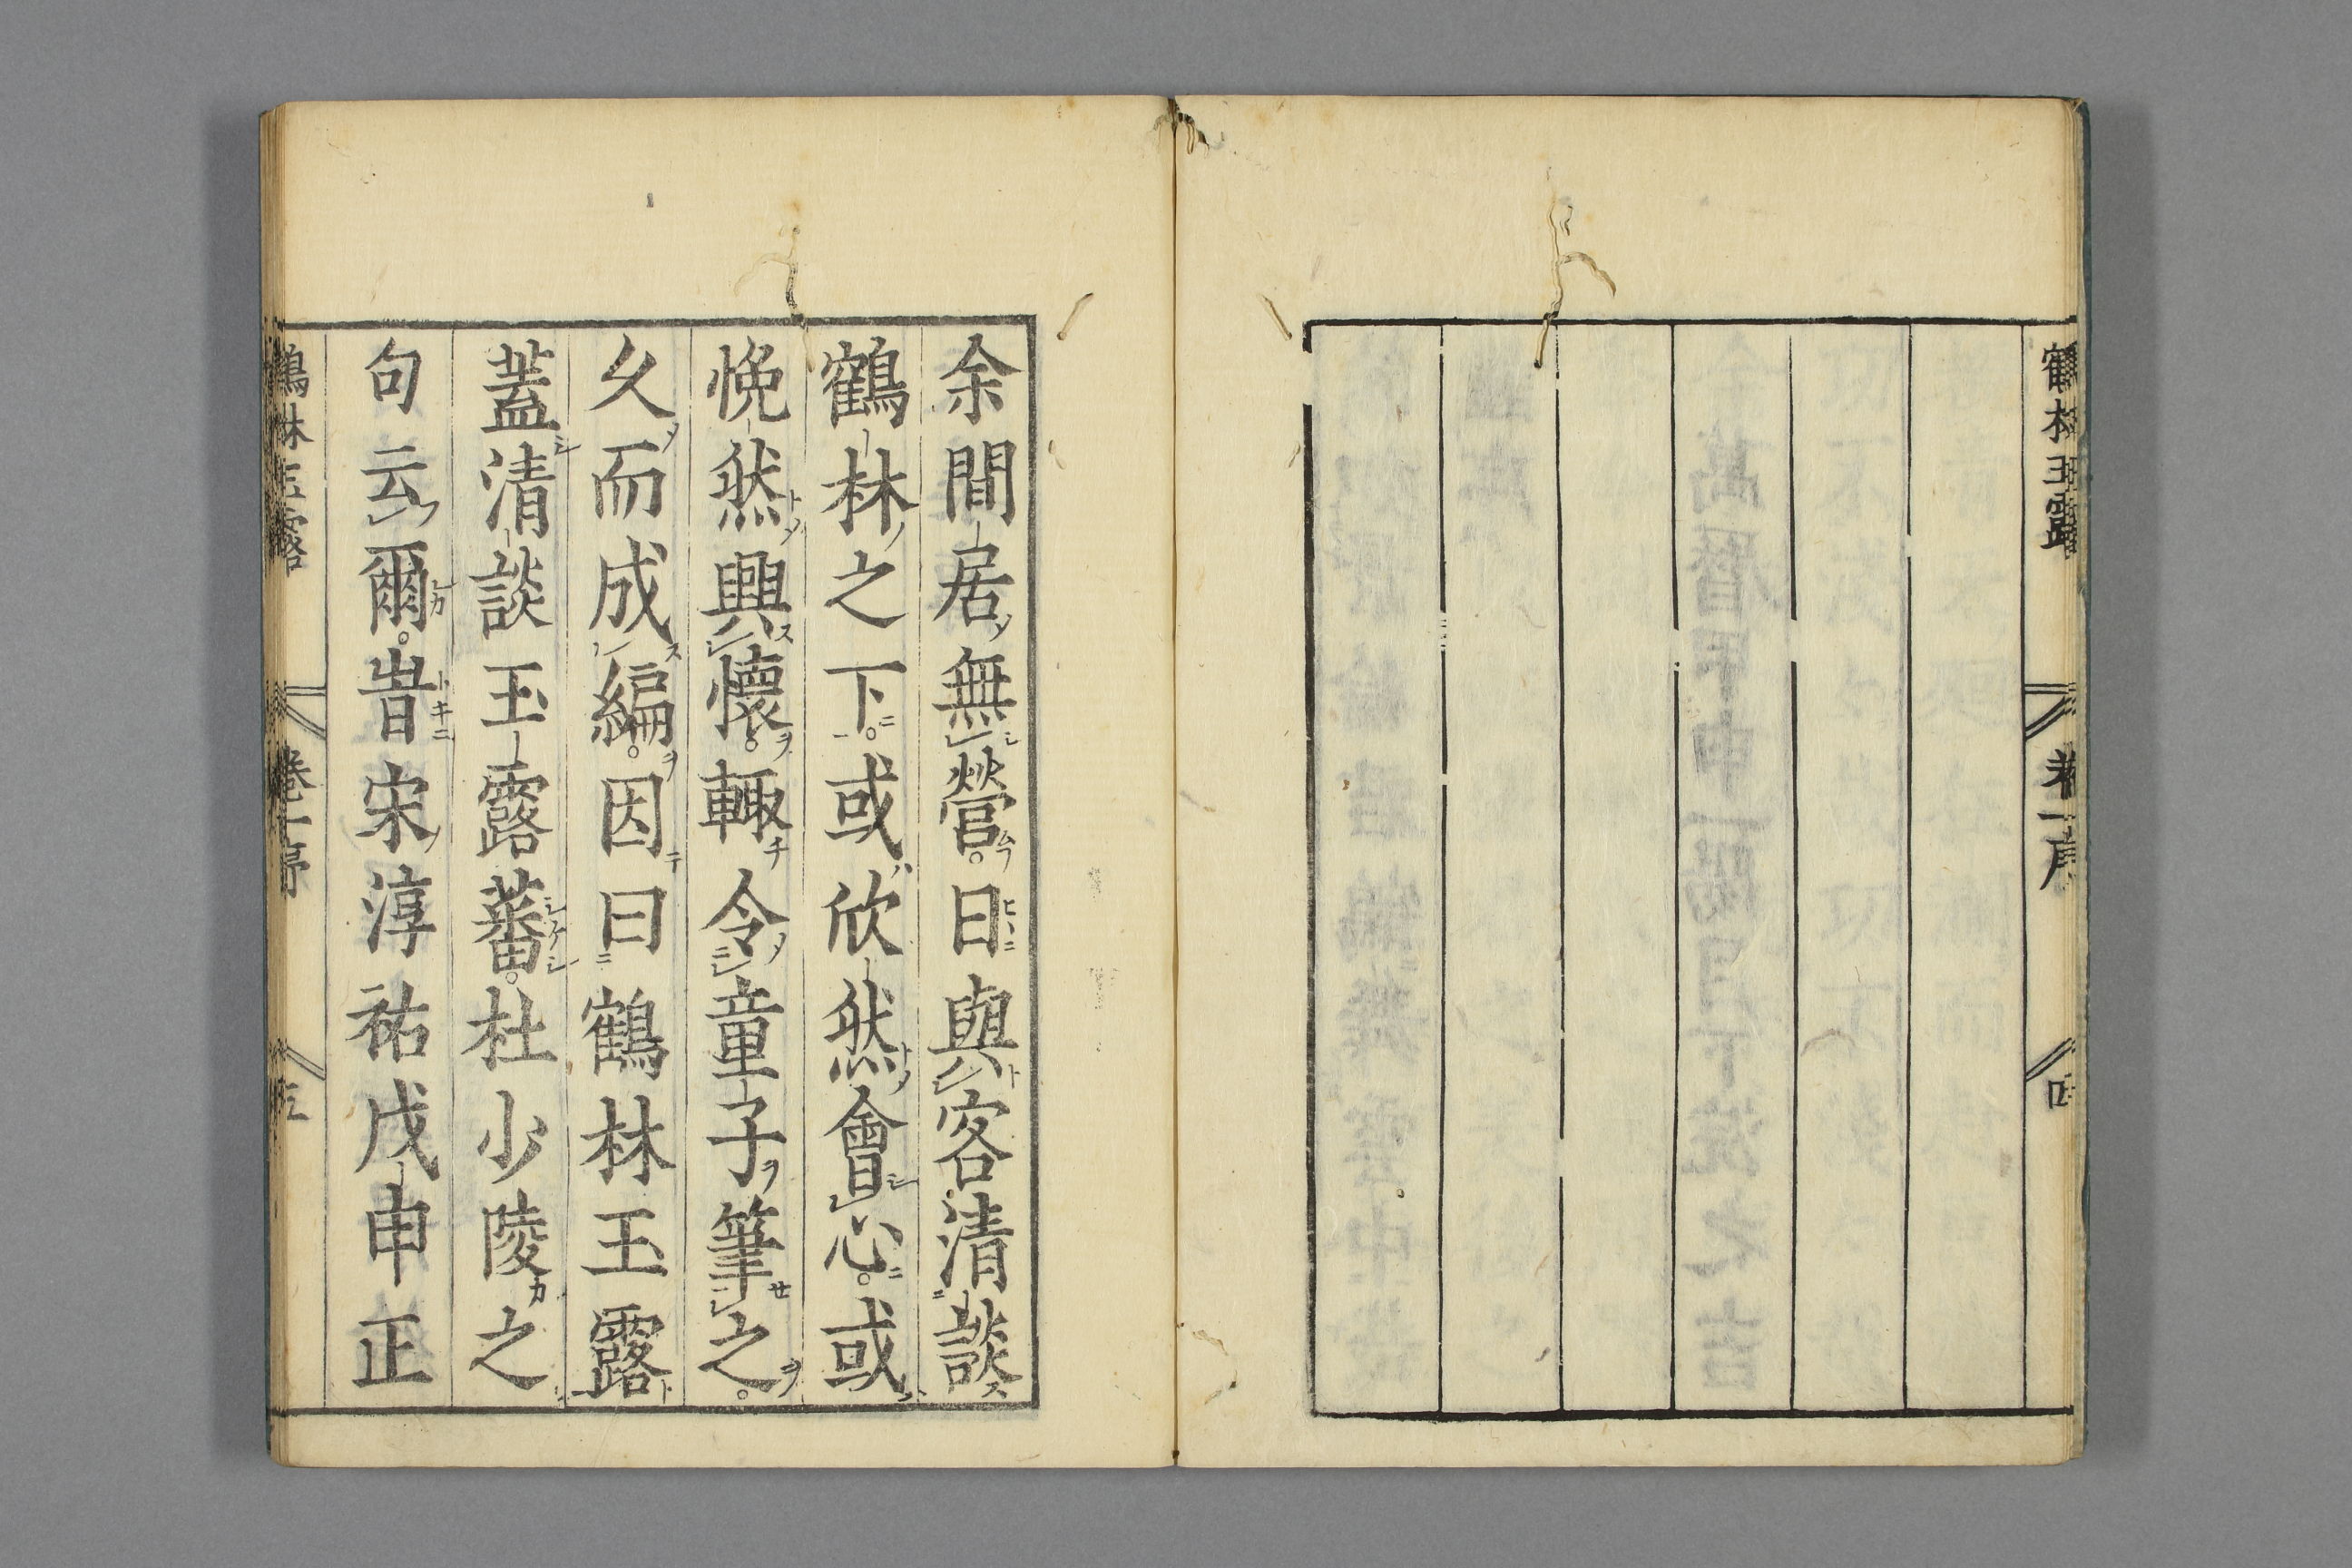 鶴林玉露 卷一序 四
余間居無營。日與客清談
鶴林之下。或欣然會心。或
悗然興懷。輙令童子筆之。
久而成編。因曰鶴林玉露
蓋清談玉露蕃。杜少陵之
句云爾。旹宋淳祐戊申正
鶴林玉露 卷一序